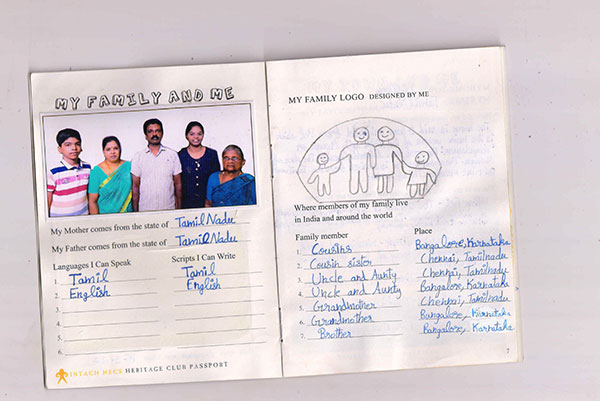 MY FAMILY AND ME
My Mother comes from the state of Tamil Nadu
My Father comes from the state of Tamil Nadu
Languages I Can Speak Scripts I Can Write
1. Tamil Tamil
2. English English
3.
4.
5.
6.
INTACH HECS HERITAGE CLUB PASSPORT
MY FAMILY LOGO DESIGNED BY ME
Where members of my family live
in India and around the world
Family member Place
1. Cousins Bangalore, Karnataka
2. Cousin sister Chennai, Tamilnadu
3. Uncle and Aunty Chennai, Tamilnadu
4. Uncle and Aunty Bangalore, Karnataka
5. Grandmother Chennai, Tamilnadu
6. Grandmother Bangalore, Karnataka
7. Brother Bangalore, Karnataka
7